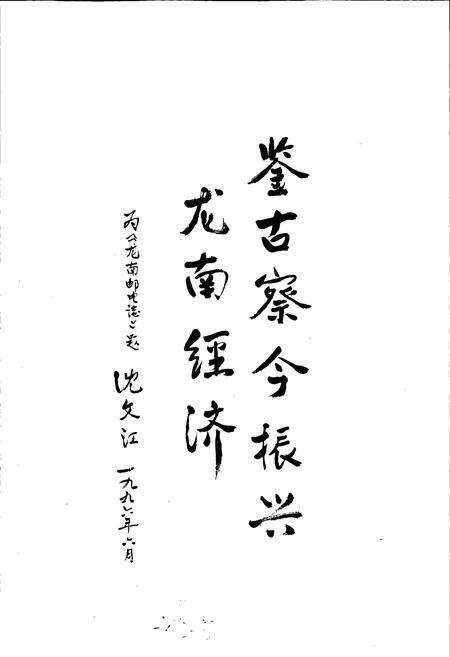 鉴古察今振兴
龙南经济
为《龙南邮电志》题
沈文江 一九九六年六月